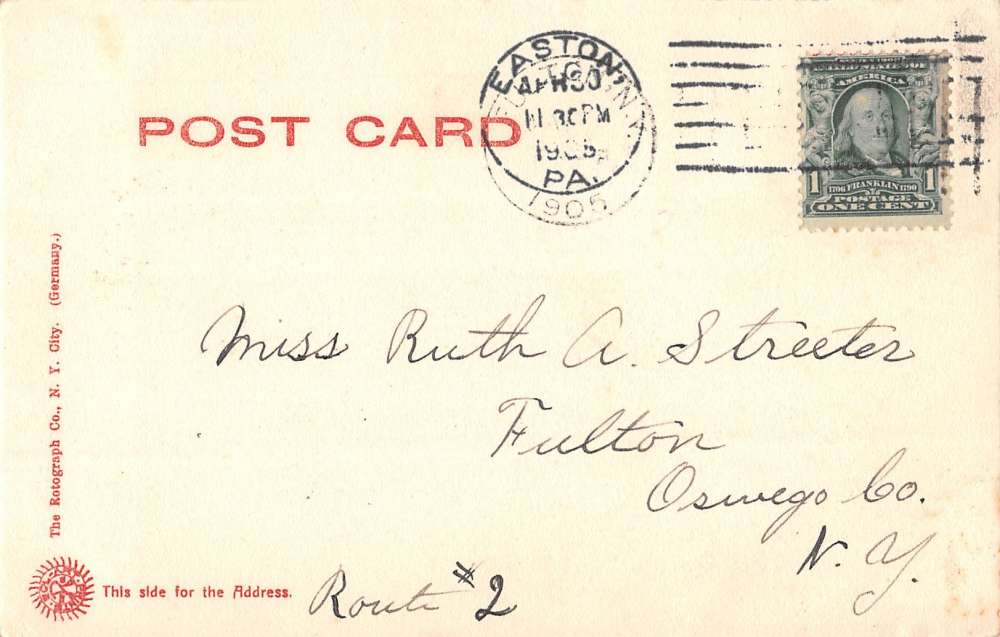 POST CARD
EASTON,
APR 30
11 30 PM
1905
PA.
1905
UNITED STATES OF
AMERICA
1 1706 FRANKLIN 1790 1
POSTAGE
ONE CENT
Miss Ruth A. Streeter
Fulton
Oswego Co.
N. Y.
Route #2
The Rotograph Co., N. Y. City. (Germany.)
This side for the Address.